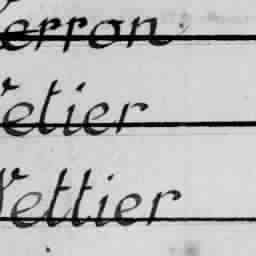 Verron
Vetier
Vettier